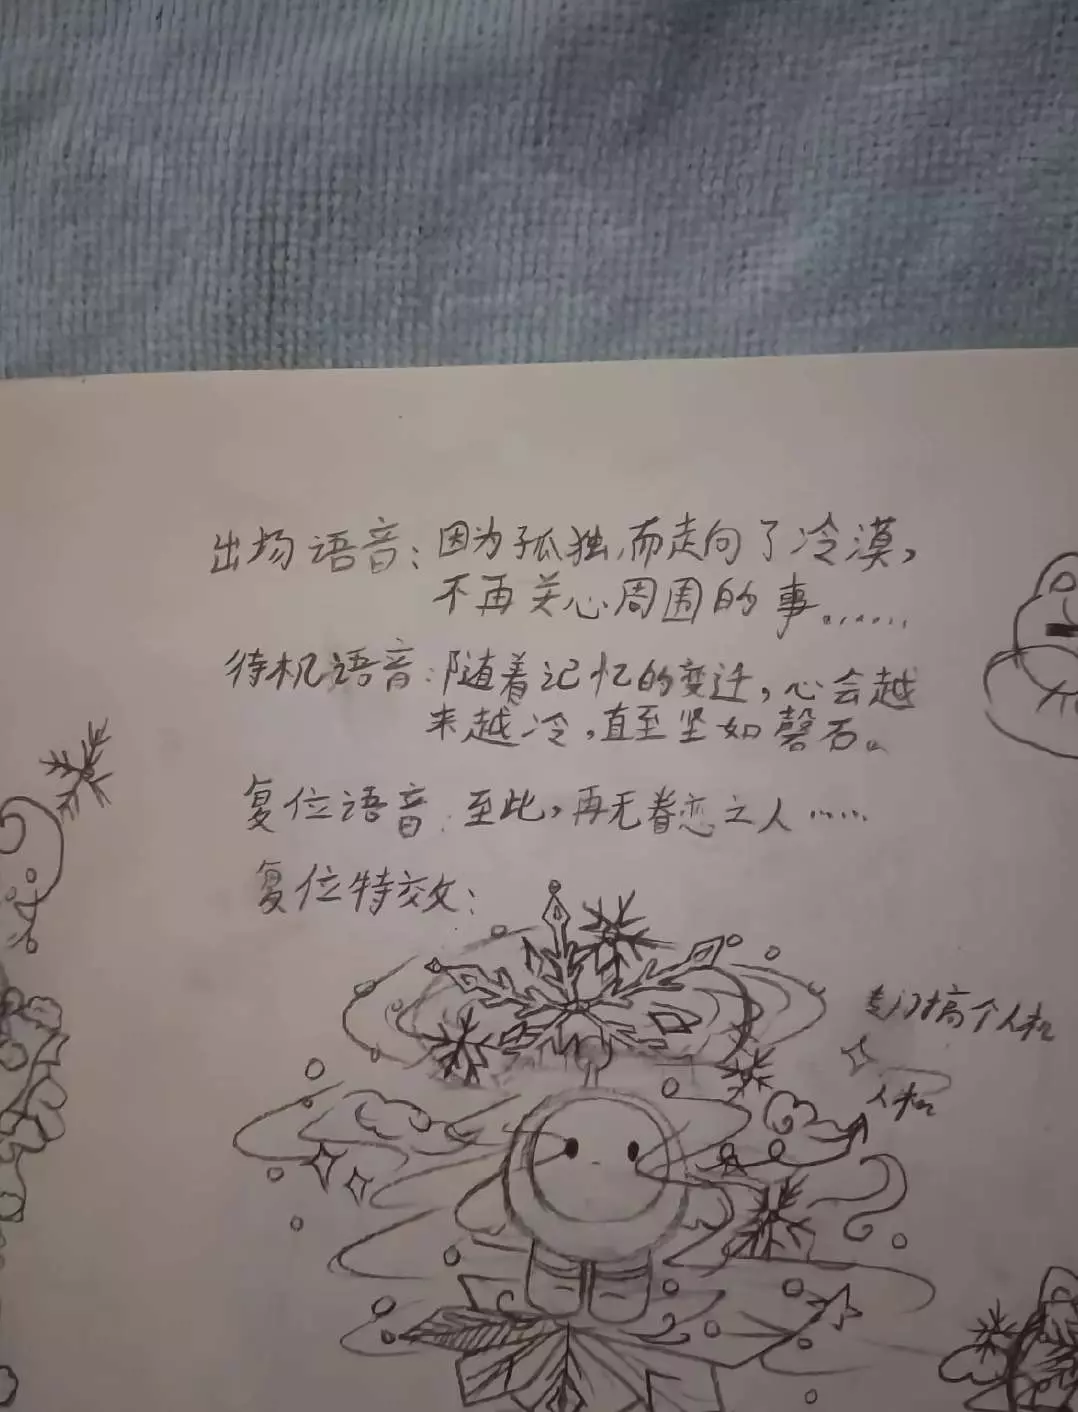 出场语音：因为孤独，而走向了冷漠，
不再关心周围的事。……
待机语音：随着记忆的变迁，心会越
来越冷，直至坚如磬石。
复位语音：至此，再无眷恋之人……
复位特效：
专门搞个人机
人机